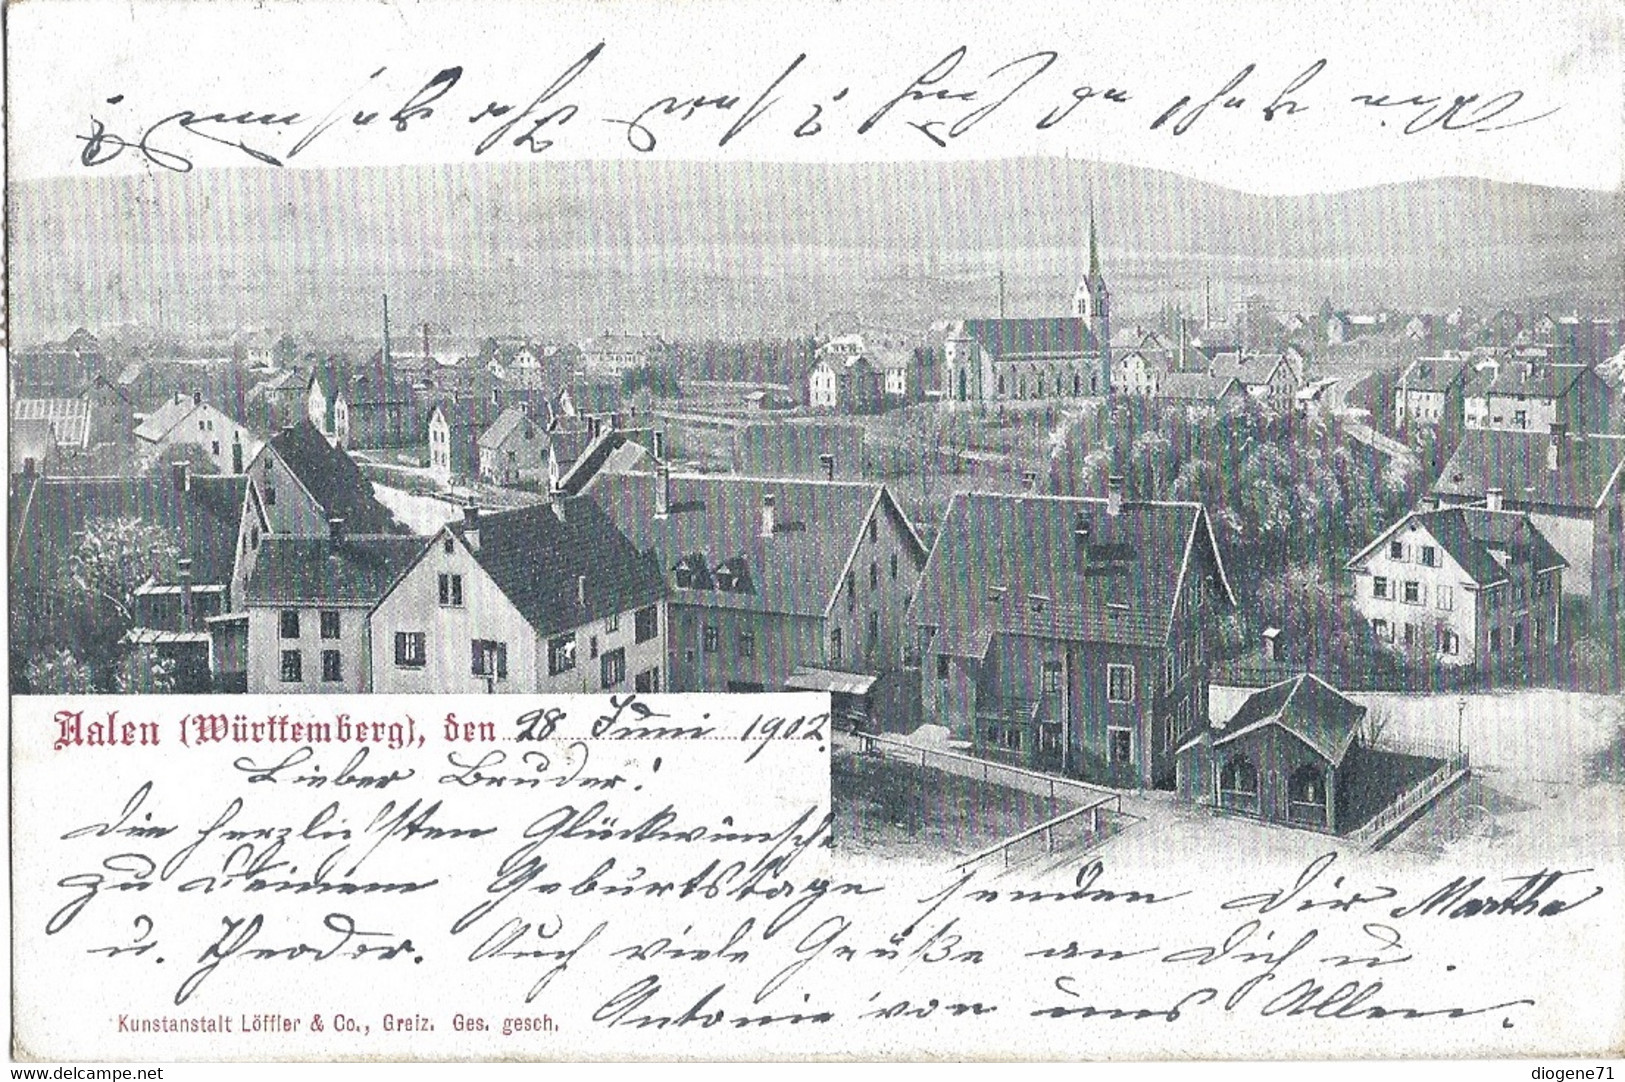 Aalen (Württemberg), den 28 Juni 1902.
Lieber Bruder!
Die herzlichsten Glückwünsche
zu Deinem Geburtstage senden Dir Martha
u. Theodor. Auch viele Grüße an Dich u.
Antonie von uns Allen.
Kunstanstalt Löffler & Co., Greiz. Ges. gesch.
www.delcampe.net
diogene71